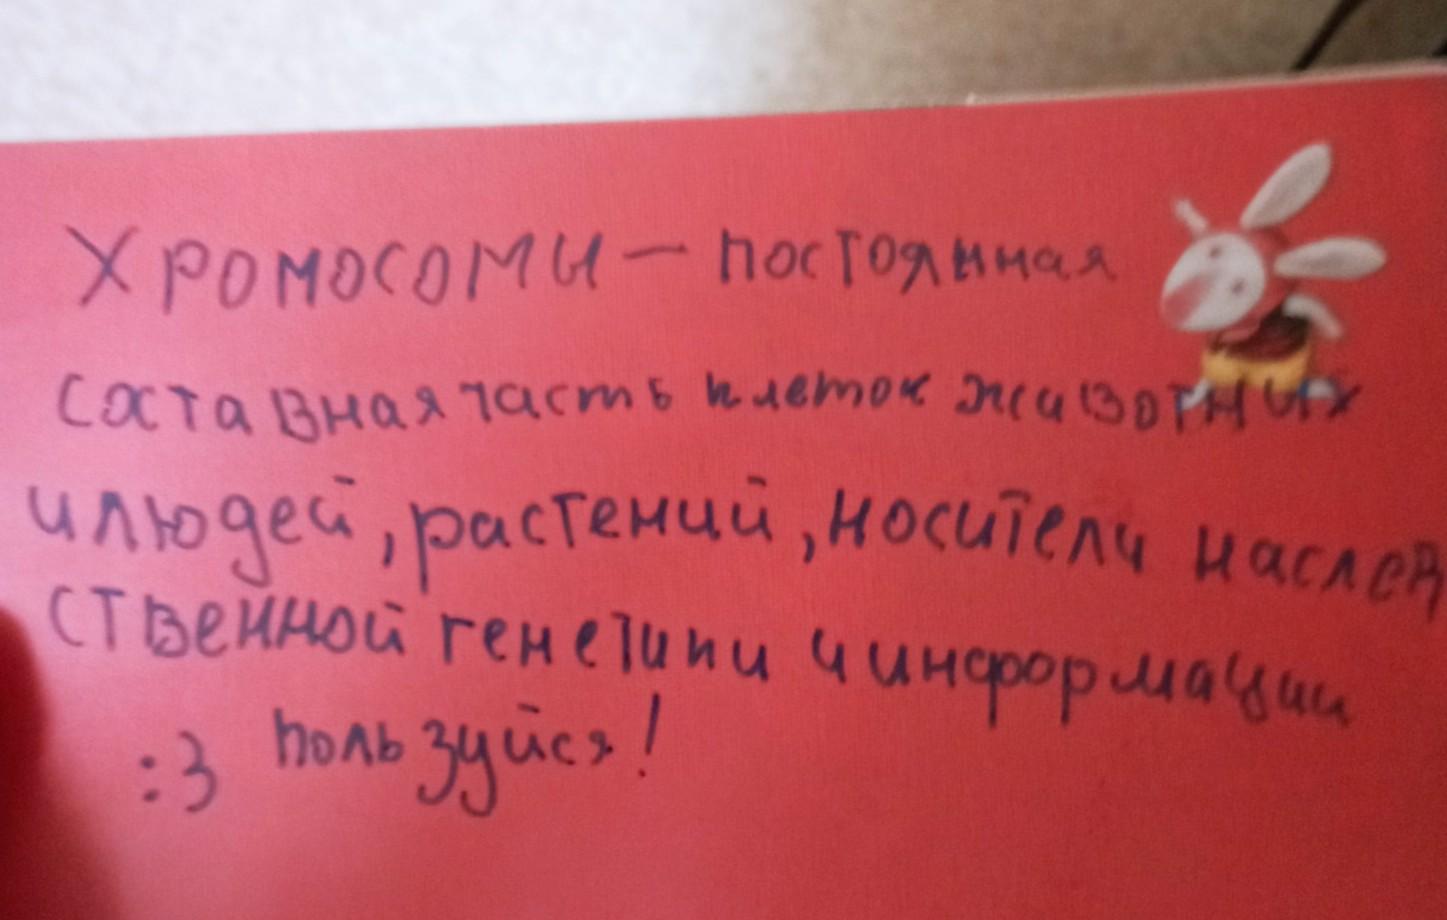 Хромосоми - постоянная
составная часть клеток животних
и людей, растений, носители наслед
ственной генетики и информации
:3 Пользуйся!